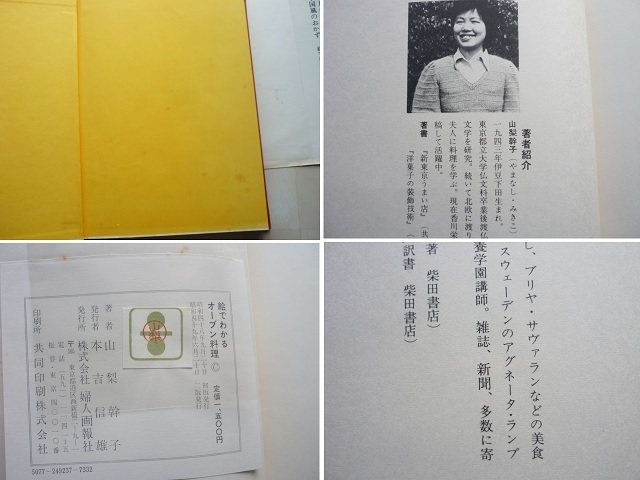 国風のおかず
著者紹介
山梨幹子（やまなし・みきこ）
一九四三年伊豆下田生まれ。
東京都立大学仏文科卒業後渡仏
文学を研究。続いて北欧に渡り
夫人に料理を学ぶ。現在香川栄
稿して活躍中。
著書
『新東京うまい店』（共
『洋菓子の装飾技術』（
絵でわかる
オーブン料理 ©
定価一、五〇〇円
昭和四十八年九月二十日 初版発行
昭和四十九年六月二十日 二版発行
著者 山梨幹子
発行者 本吉信雄
発行所 株式会社 婦人画報社
印刷所 共同印刷株式会社
5077-249237-7332
し、ブリヤ・サヴァランなどの美食
スウェーデンのアグネータ・ランプ
養学園講師。雑誌、新聞、多数に寄
著 柴田書店）
訳書 柴田書店）